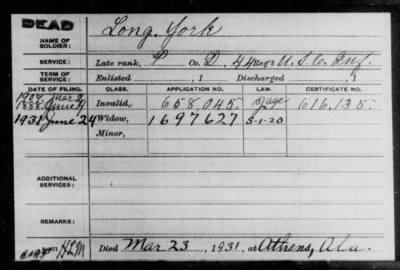 DEAD
NAME OF SOLDIER: Long, York
SERVICE: Late rank, P Co. D, 44 Reg't U.S.C. Inf.
TERM OF SERVICE: Enlisted , 1 Discharged , 1
DATE OF FILING. CLASS. APPLICATION NO. LAW. CERTIFICATE NO.
1907 Mar
1888 June Invalid, 658.045. 616.135.
1931 June 24 Widow, 1697627 5-1-20
Minor,
ADDITIONAL SERVICES:
REMARKS:
HLM Died Mar 23, 1931, at Athens, Ala.